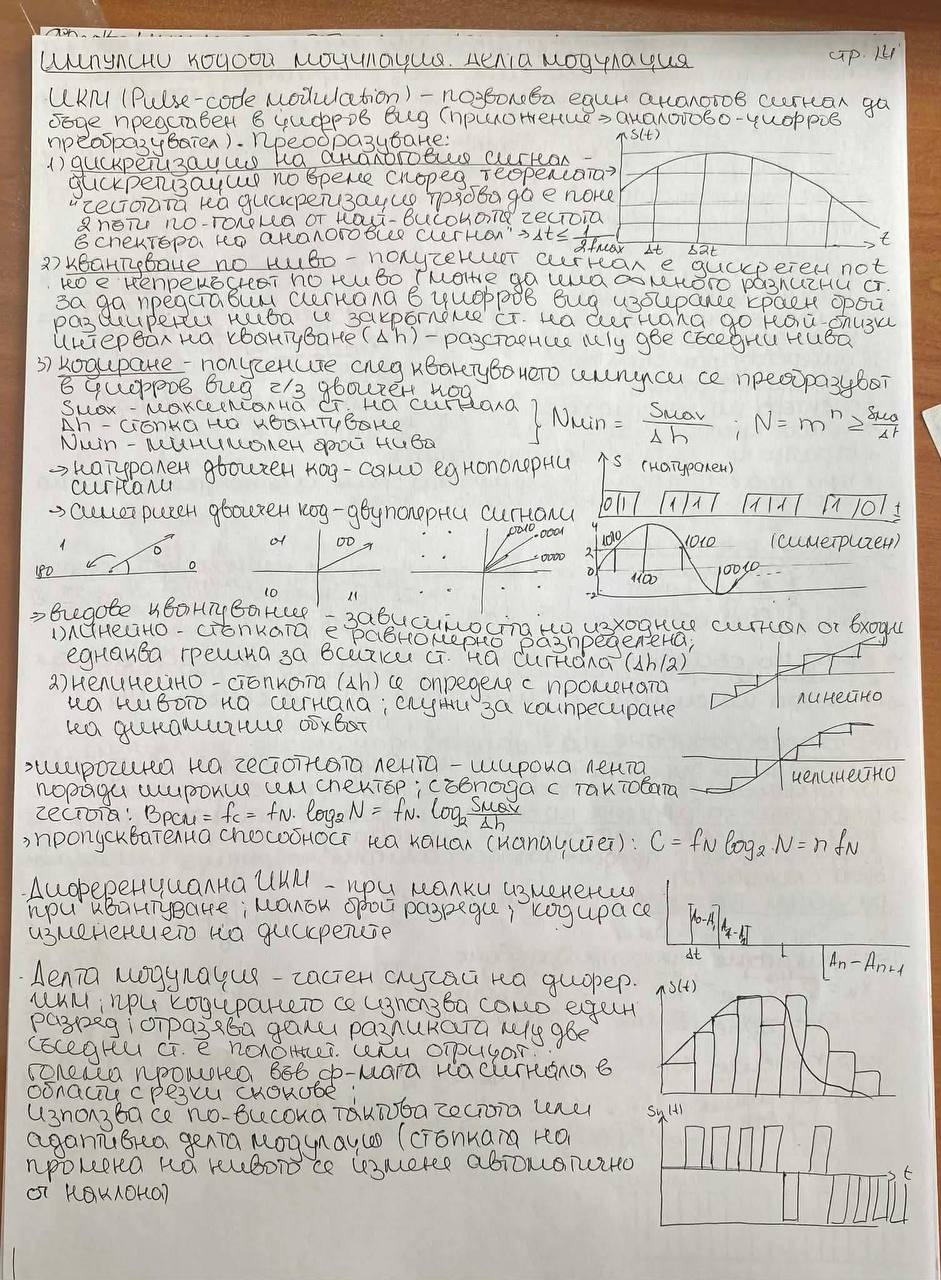 Импулсни кодова модулация. Делта модулация
стр. 14
ИКМ (Pulse-code modulation) – позволява един аналогов сигнал да
бъде представен в цифров вид (приложение → аналогово-цифров
преобразувател). Преобразуване:
1) дискретизация на аналоговия сигнал –
дискретизация по време според теоремата →
"честотата на дискретизация трябва да е поне
2 пъти по-голема от най-високата честота
в спектъра на аналоговия сигнал" → Δt ≤ 1/2fmax
S(t)
Δt Δ2t t
2) квантуване по ниво – полученият сигнал е дискретен по t
но е непрекъснат по ниво (може да има ∞ много различни ст.
за да представим сигнала в цифров вид избираме краен брой
разширени нива и закръгляме ст. на сигнала до най-близки
интервал на квантуване (Δh) – разстоение м/у две съседни нива
3) кодиране – получените след квантуваното импулси се преобразуват
в цифров вид ч/з двоичен код
Smax – максимална ст. на сигнала
Δh – стъпка на квантуване
Nmin – минимален брой нива
Nmin = Smax/Δh ; N = mⁿ ≥
→ натурален двоичен код – само еднополерни
сигнали
→ симетричен двоичен код – двуполерни сигнали
S (натурален)
0 1 1 1 1 1 1 1 1 1 0 t
1 180 0 0
01 00 10 11
0010 0001 0000
4 2 0 -2
1010 1100 1010 0010
(симетричен)
⇒ видове квантувание – зависимостта на изходния сигнал от входни
1) линейно – стъпката е равномерно разпределена;
еднаква грешка за всички ст. на сигнала (Δh/2)
2) нелинейно – стъпката (Δh) се определе с промената
на нивото на сигнала; служи за компресиране
на динамичние обхват
линейно
нелинейно
→ широчина на честотната лента – широка лента
поради широкия им спектър; съвпада с тактовата
честота: BPCM = fc = fN. log₂N = fN. log₂ Smax/Δh
→ пропусквателна способност на канал (капацитет): C = fN log₂.N = n fN
- Диференциална ИКМ – при малки изменение
при квантуване; малък брой разреди; кодира се
изменението на дискретите
Δt An – An+1
- Делта модулация – частен случай на дифер.
ИКМ; при кодирането се използва само един
разред; отразява дали разликата м/у две
съседни ст. е положит. или отрицат.
голема промяна във ф-мата на сигнала в
области с резки скокове;
използва се по-висока тактова честота или
адаптивна делта модулация (стъпката на
промена на нивото се измене автоматично
от наклона)
S(t)
t